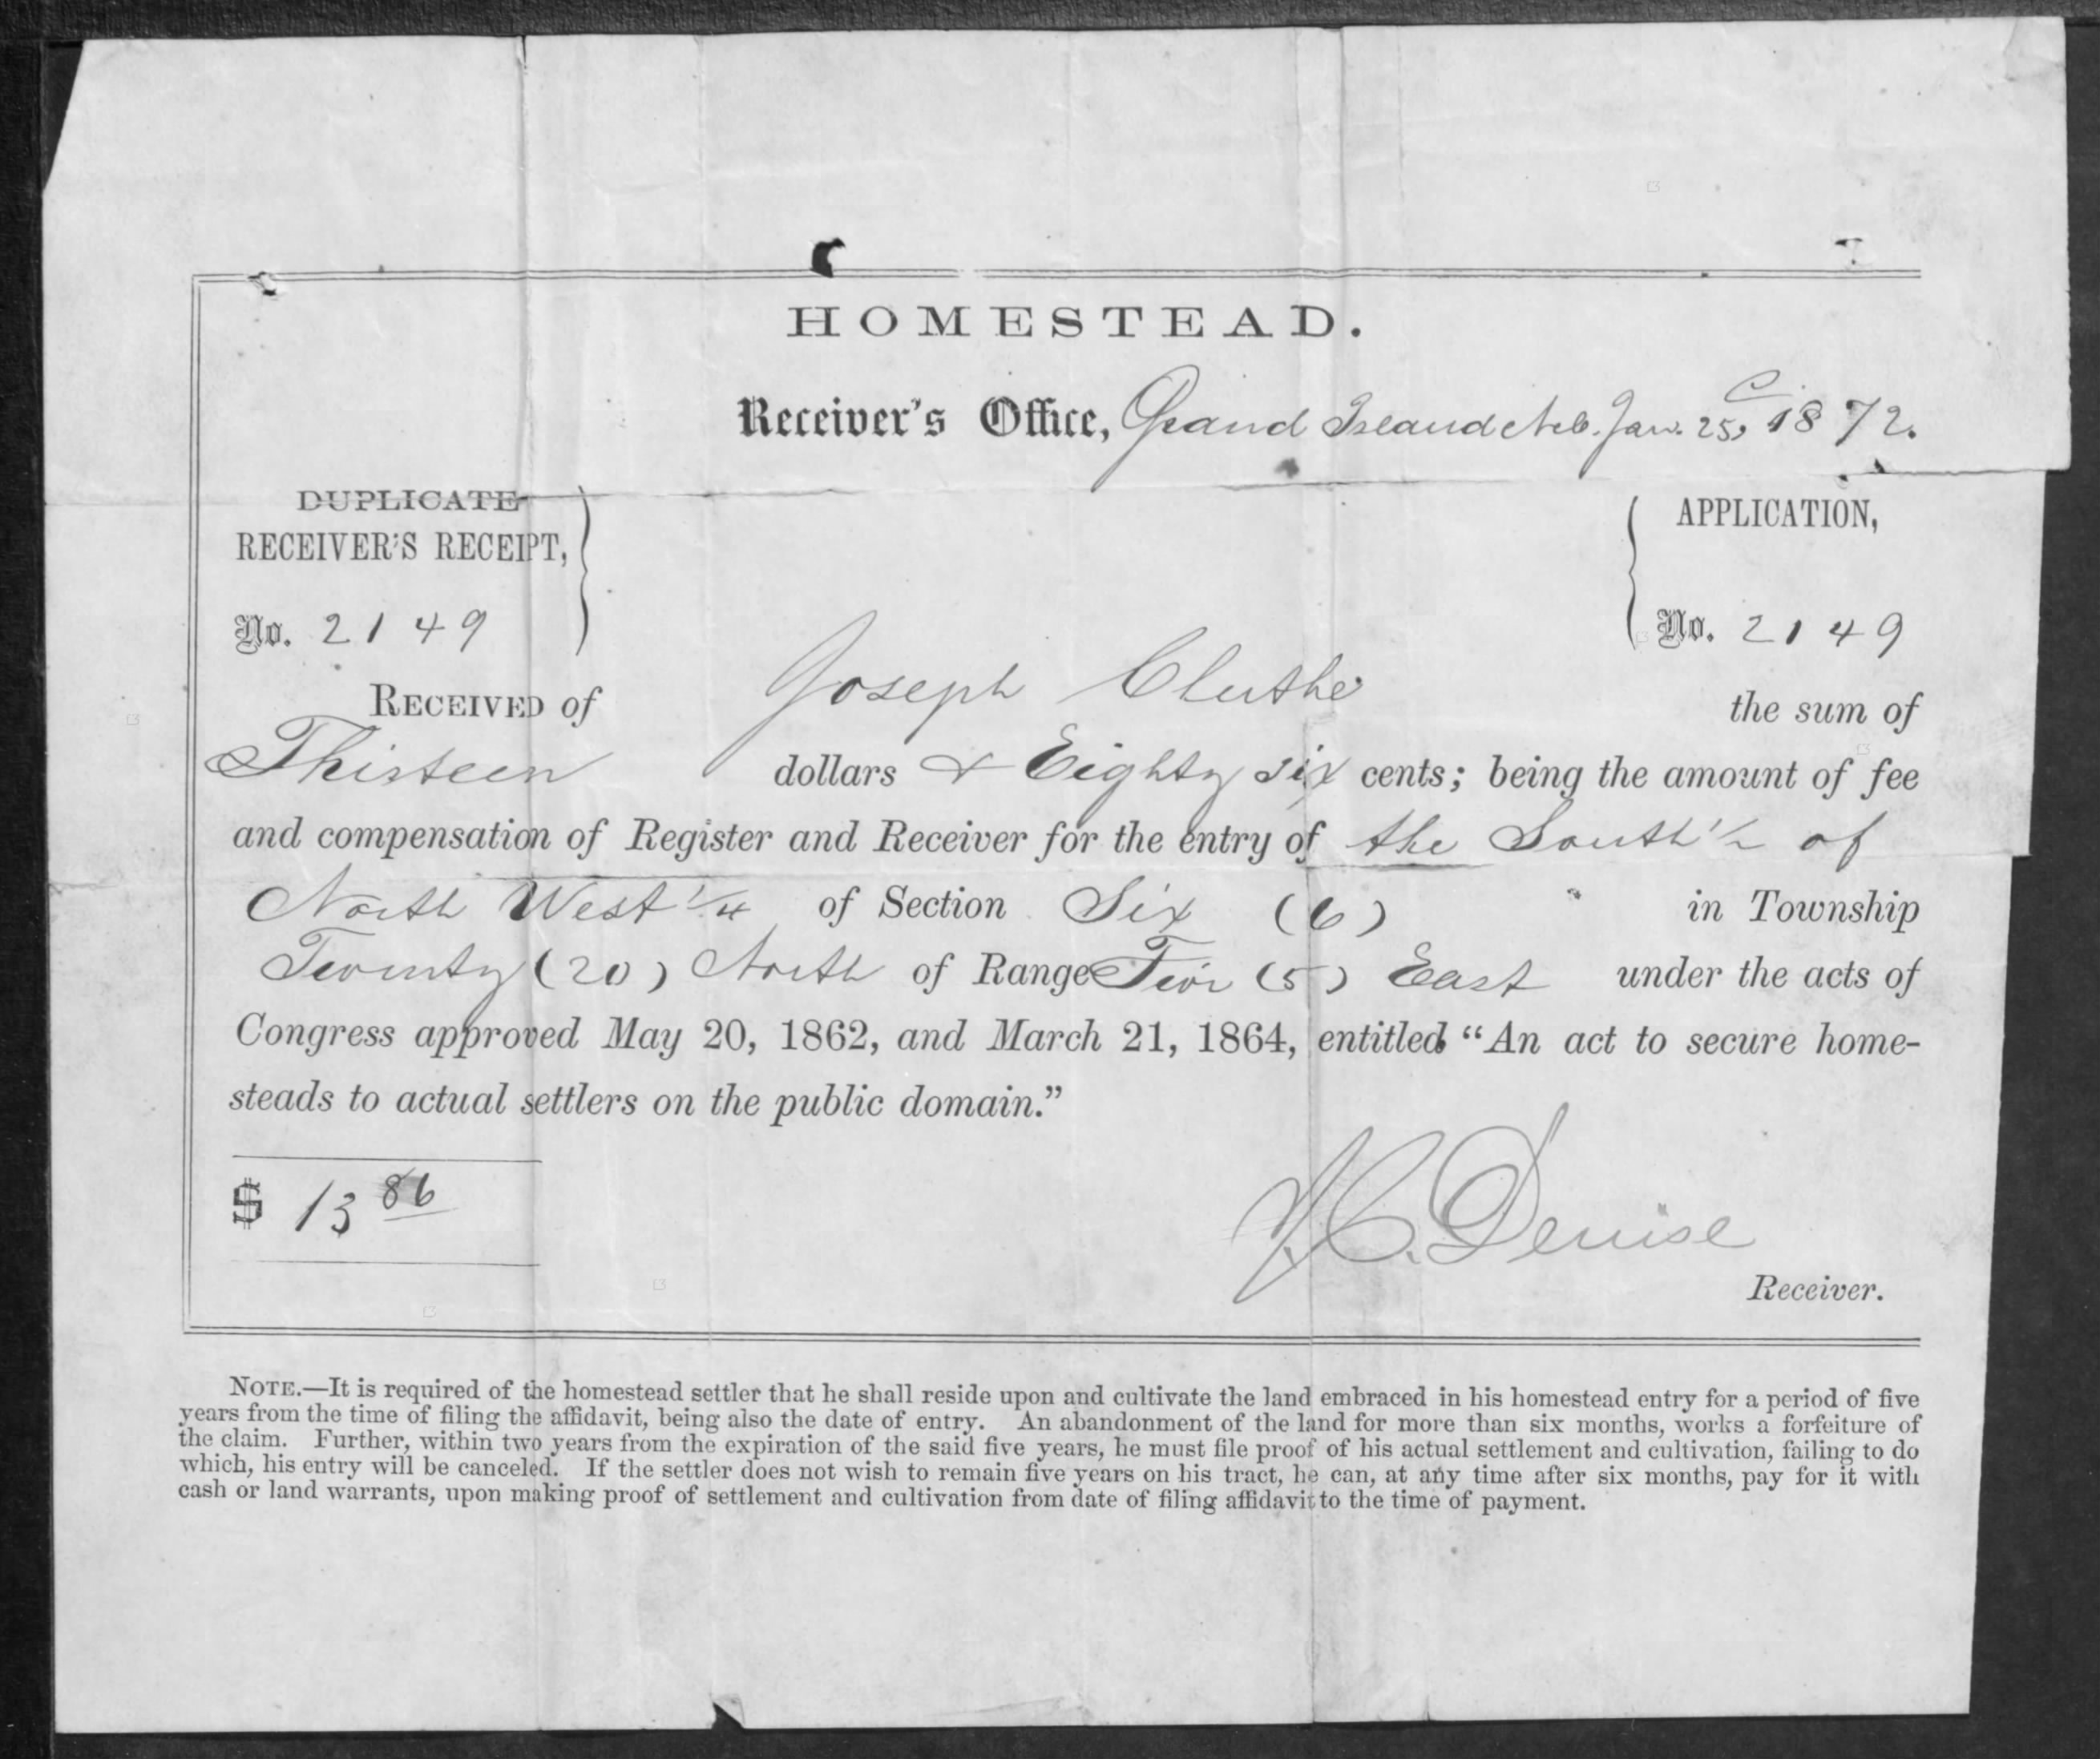 HOMESTEAD.
Receiver's Office, Grand Island Neb. Jan. 25, 1872.
DUPLICATE
RECEIVER'S RECEIPT,
No. 2149
APPLICATION,
No. 2149
RECEIVED of Joseph Cluthe the sum of
Thirteen dollars & Eighty six cents; being the amount of fee
and compensation of Register and Receiver for the entry of the South 1/2 of
North West 1/4 of Section Six (6) in Township
Twenty (20) North of Range Five (5) East under the acts of
Congress approved May 20, 1862, and March 21, 1864, entitled "An act to secure home-
steads to actual settlers on the public domain."
$ 13 86
J. C. Denise
Receiver.
NOTE.—It is required of the homestead settler that he shall reside upon and cultivate the land embraced in his homestead entry for a period of five
years from the time of filing the affidavit, being also the date of entry. An abandonment of the land for more than six months, works a forfeiture of
the claim. Further, within two years from the expiration of the said five years, he must file proof of his actual settlement and cultivation, failing to do
which, his entry will be canceled. If the settler does not wish to remain five years on his tract, he can, at any time after six months, pay for it with
cash or land warrants, upon making proof of settlement and cultivation from date of filing affidavit to the time of payment.